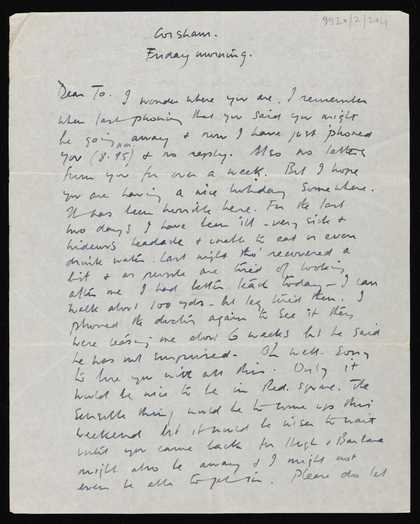 9920/2/204
Corsham.
Friday morning.
Dear To. I wonder where you are. I remember
when last phoning that you said you might
be going away & now I have just phoned
you (8.45 am) & no reply. Also no letter
from you for over a week. But I hope
you are having a nice holiday somewhere.
It has been horrible here. For the last
two days I have been ill - very sick &
hideous headache & unable to eat or even
drink water. Last night this recovered a
bit & as people are tired of looking
after me I had better lead today - I can
walk about 100 yds - but leg tired then. I
phoned the doctor again to see if they
were leaving me about 6 weeks but he said
he was not surprised. Oh well. Sorry
to bore you with all this. Only it
would be nice to be in Red. Square. The
sensible thing would be to come up this
weekend but it would be wiser to wait
until you came back for Hugh & Barbara
might also be away & I might not
even be able to get in. Please do let